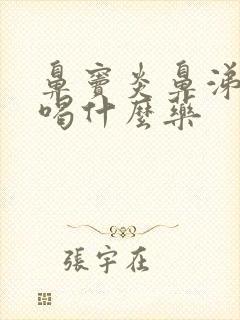 鼻竇炎鼻涕
喝什麼藥
張宇在